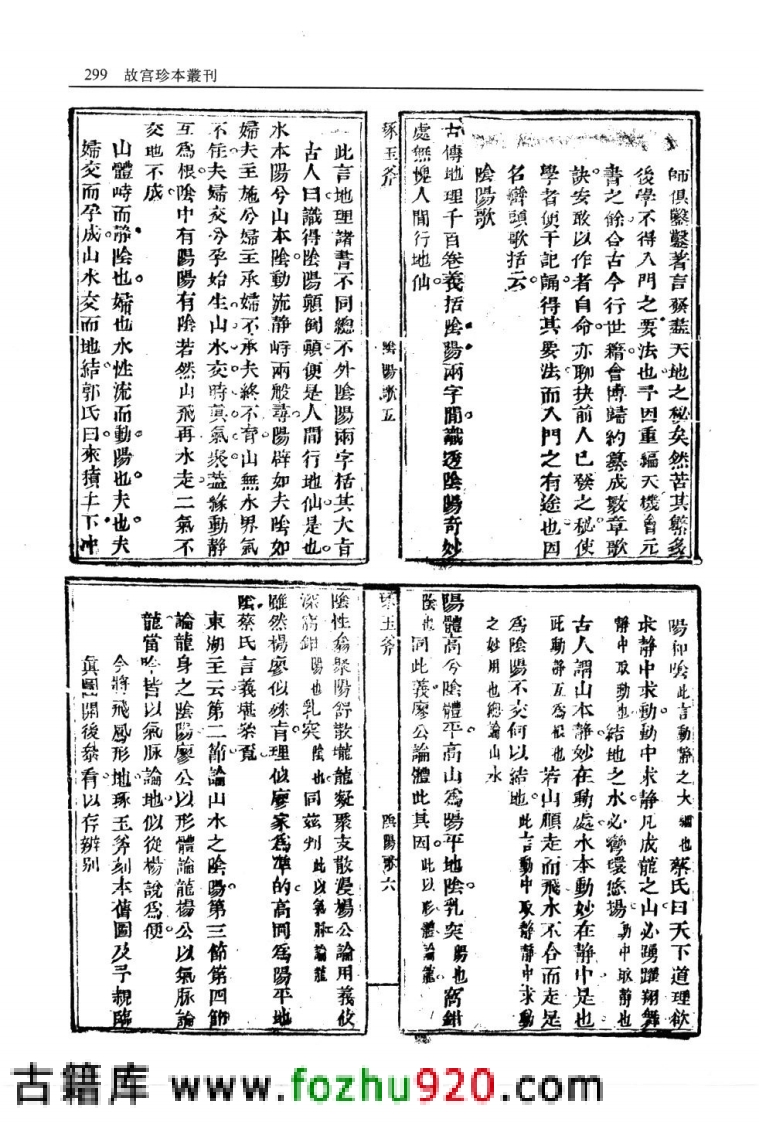 299 故宫珍本叢刊
師俱鑿鑿著言發蘊天地之秘矣然苦其繁多
後學不得入門之要法也予因重編天機會元
書之餘合古今行世籍會博歸約纂成數章歌
訣安敢以作者自命亦聊抉前人已發之秘使
學者便于記誦得其要法而入門之有途也因
名巒頭歌括云
陰陽歌
古傳地理千百卷義括陰陽兩字間識透陰陽奇妙
處無愧人間行地仙
琢玉斧
陰陽歌五
此言地理諸書不同總不外陰陽兩字括其大旨
古人曰識得陰陽顛倒顛便是人間行地仙是也
水本陽兮山本陰動流静峙兩般尋陽辟如夫陰如
婦夫主施兮婦主承婦不承夫終不育山無水界氣
不住夫婦交兮孕始生山水交時真氣聚蓋緣動靜
互爲根陰中有陽陽有陰若然山飛再水走二氣不
交地不成
山體峙而静陰也婦也水性流而動陽也夫也夫
婦交而孕成山水交而地結郭氏曰來積止下冲
陽和陰此言動靜之大端也蔡氏曰天下道理欲
求静中求動動中求静凡成龍之山必踴躍翔舞
静中取動也結地之水必彎環悠揚動中取静也
古人謂山本静妙在動處水本動妙在静中是也
此動静互爲根也若山順走而飛水不合而走是
爲陰陽不交何以結地此言動中取静静中求動
之妙用也總論山水
陽體高兮陰體平高山爲陽平地陰乳突陽也窩鉗
陰也同此義廖公論體此其因此以形體論龍
琢玉斧
陰陽歌六
陰性翕聚陽舒散壠龍凝聚支散漫楊公論用義攸
深窩鉗陽也乳突陰也同兹判此以氣脉論龍
雖然楊廖似殊肯理似廖家爲凖的高同爲陽平地
陰蔡氏言義堪榮覔
東湖王云第二節論山水之陰陽第三節第四節
論龍身之陰陽廖公以形體論龍楊公以氣脉論
龍當時皆以氣脉論地似從楊說爲便
今將飛鳳形地琢玉斧刻本舊圖及予親臨
眞圖開後叅看以存辨别
古籍库 www.fozhu920.com